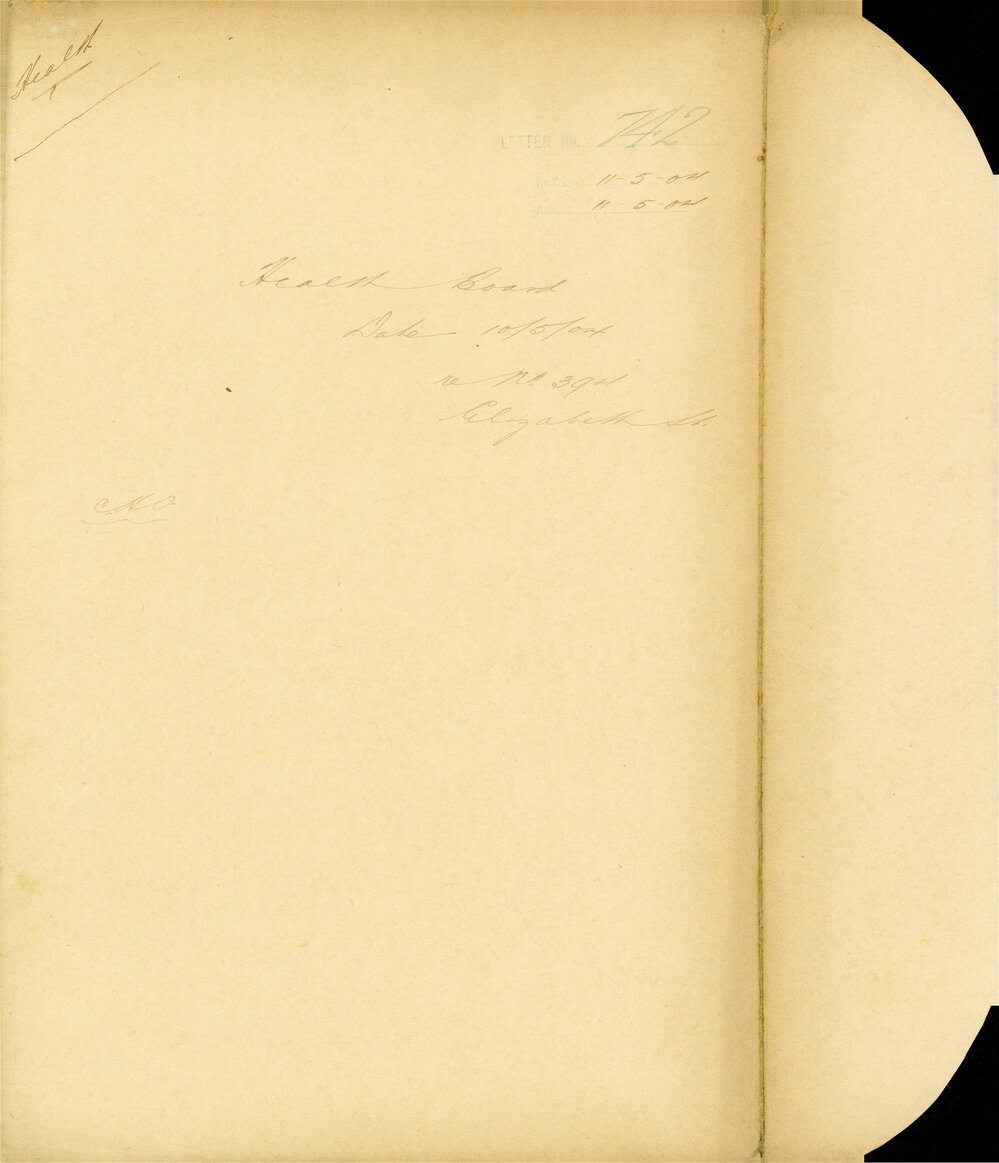 Health
LETTER No. 742
Rec'd 11-5-04
11-5-04
Health Board
Date 10/5/04
re No 394
Elizabeth St.
CHO